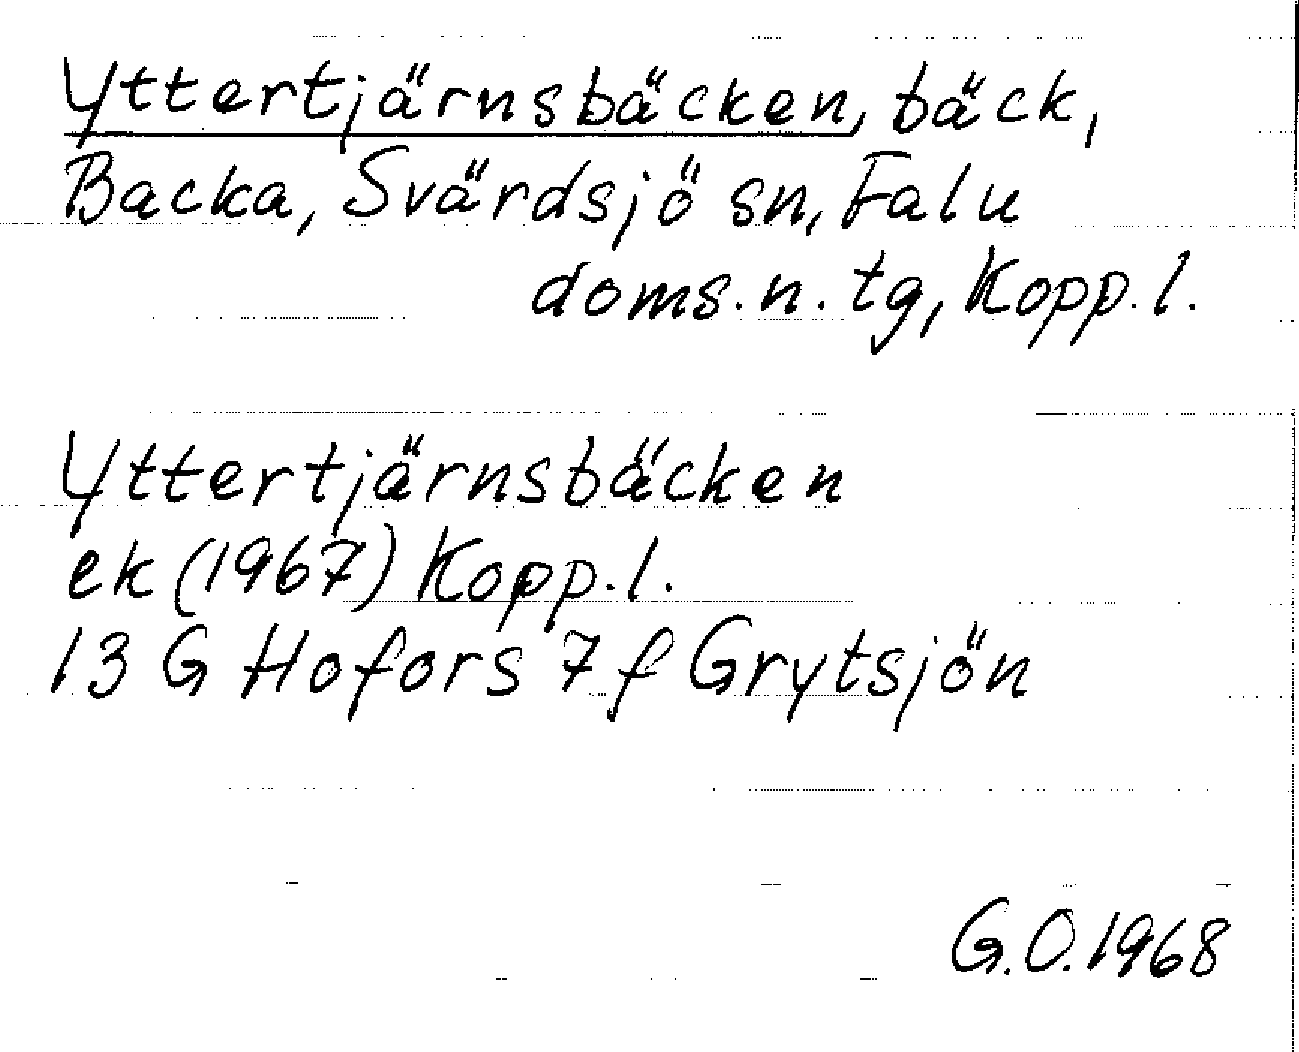 Yttertjärnsbäcken, bäck,
Backa, Svärdsjö sn, Falu
doms.n. tg, Kopp.l.
Yttertjärnsbäcken
ek (1967) Kopp.l.
13 G Hofors 7 f Grytsjön
G.O. 1968